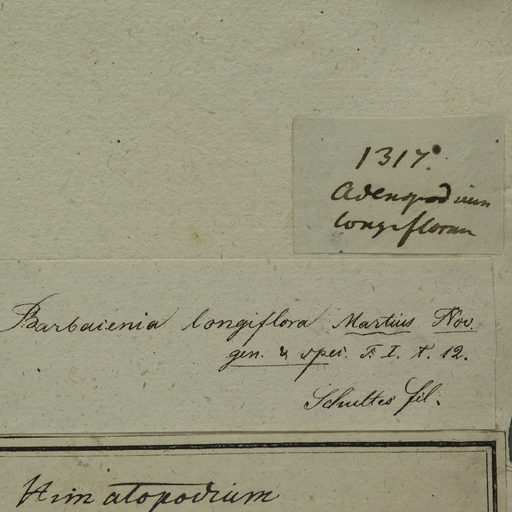 1317.
Adenopodium
longiflorum
Barbaienia longiflora Martius Nov.
gen. & spei. T. I. t. 12.
Schultes fil.
Himatopodium